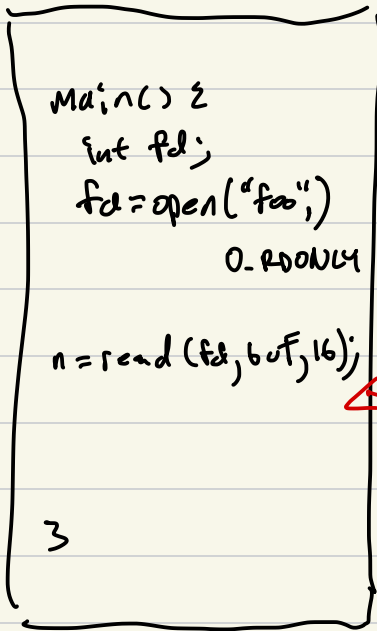 main() {
int fd;
fd = open("foo",)
O_RDONLY
n = read (fd, buf, 16);
}